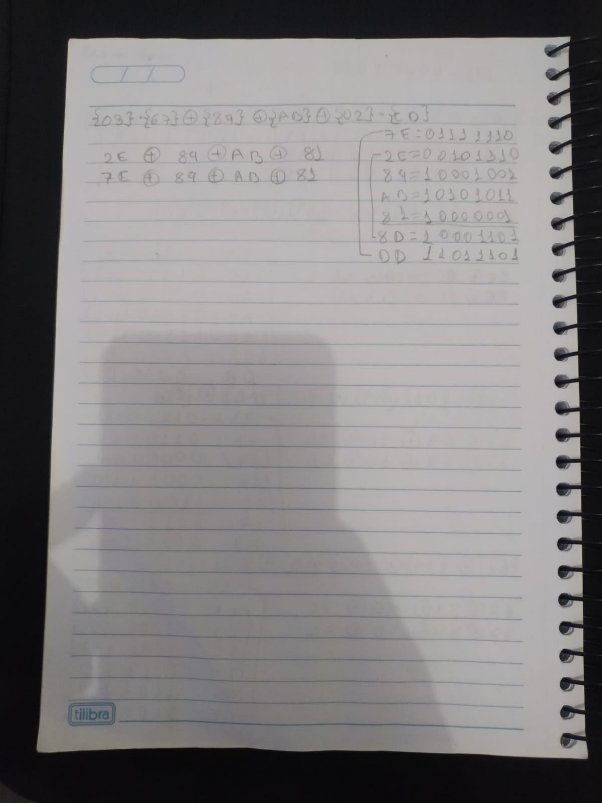 / /
{03}·{67} ⊕ {89} ⊕ {AB} ⊕ {02}·{CD}
2E ⊕ 89 ⊕ AB ⊕ 81
7E ⊕ 89 ⊕ AB ⊕ 81
7E=01111110
2E=00101110
89=10001001
AB=10101011
81=10000001
8D=10001101
DD 11011101
tilibra